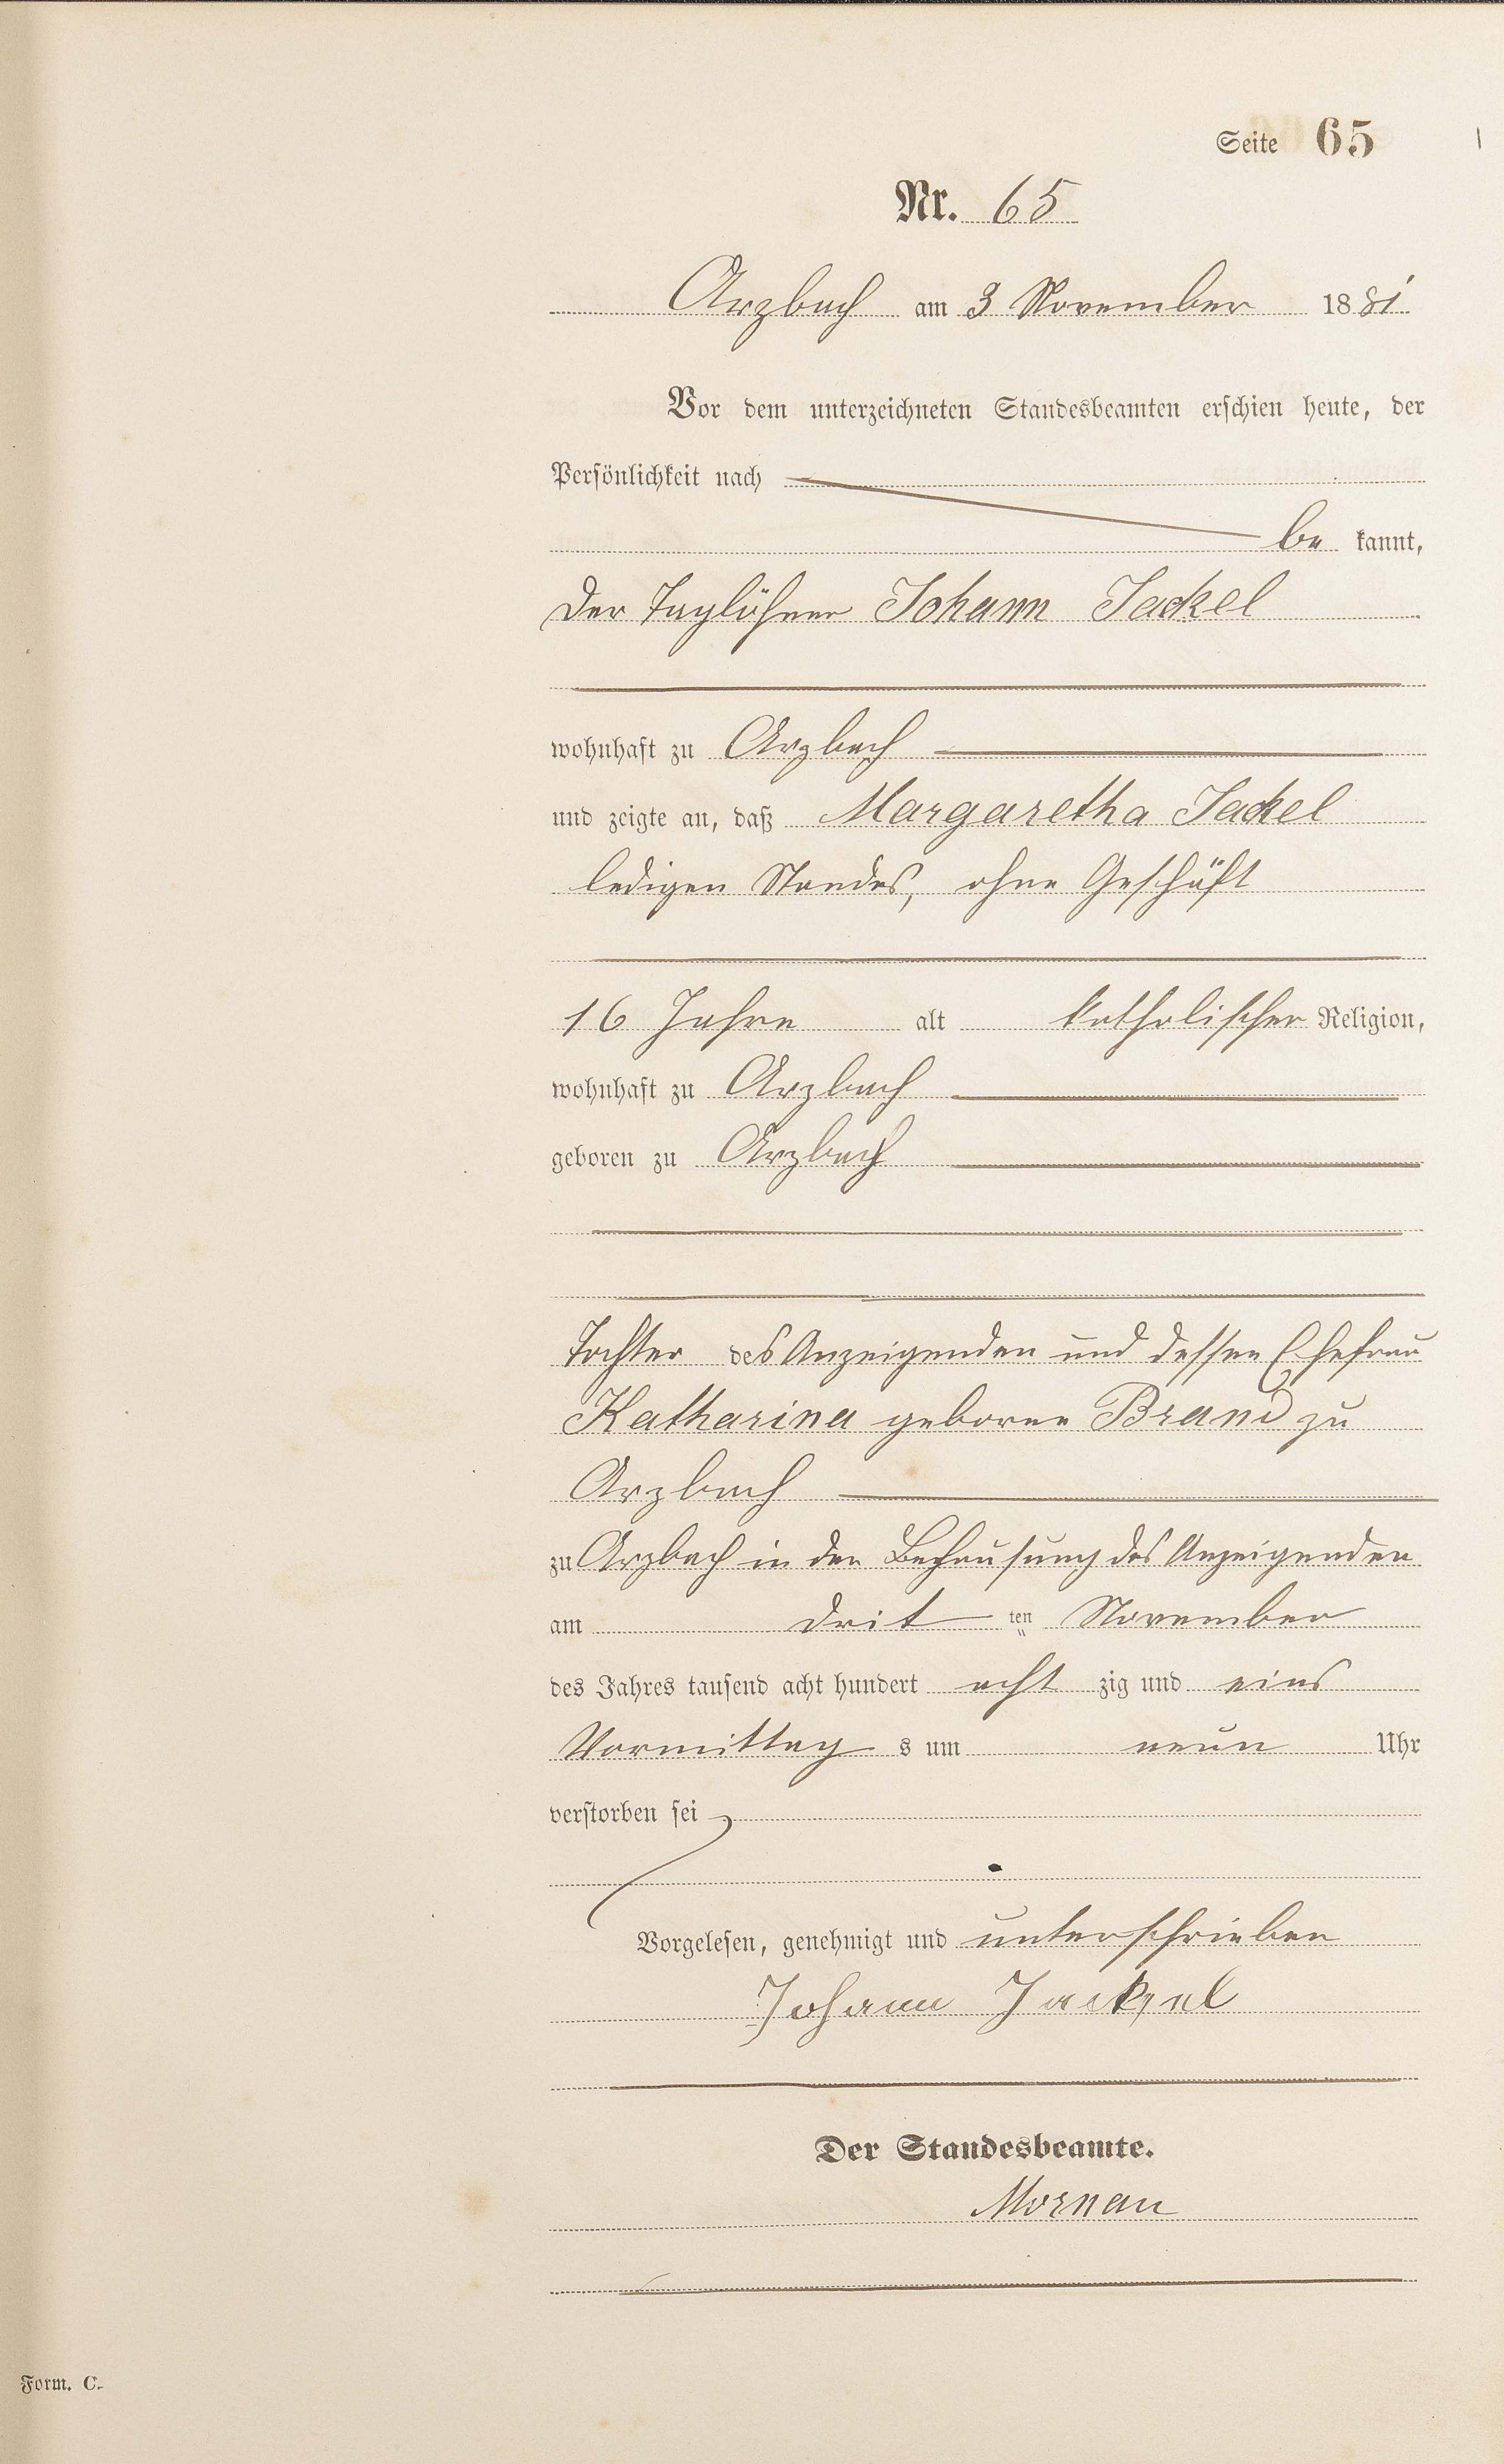 Seite 65
Nr. 65
Arzbach am 3 November 1881
Vor dem unterzeichneten Standesbeamten erschien heute, der
Persönlichkeit nach
be kannt,
der Taglöhner Johann Jackel
wohnhaft zu Arzbach
und zeigte an, daß Margaretha Jackel
ledigen Standes, ohne Geschäft
16 Jahre alt katholischer Religion,
wohnhaft zu Arzbach
geboren zu Arzbach
Tochter des Anzeigenden und dessen Ehefrau
Katharina geborne Brand zu
Arzbach
zu Arzbach in der Behausung des Anzeigenden
am drit ten November
des Jahres tausend acht hundert acht zig und eins
Vormittag s um neun Uhr
verstorben sei
Vorgelesen, genehmigt und unterschrieben
Johann Jackel
Der Standesbeamte.
Mornau
Form. C.